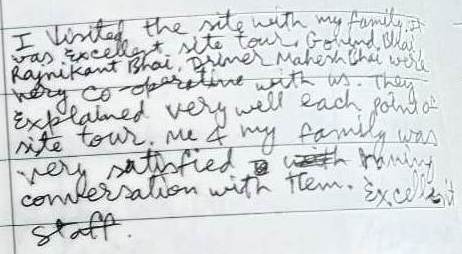 I Visited the site with my family. It
was excellent site tour. Govind Bhai
Rajnikant Bhai, Driver Mahesh Bhai were
very co-operative with us. They
Explained very well each point on
site tour. me & my family was
very satisfied with having
conversation with them. Excellent
staff.